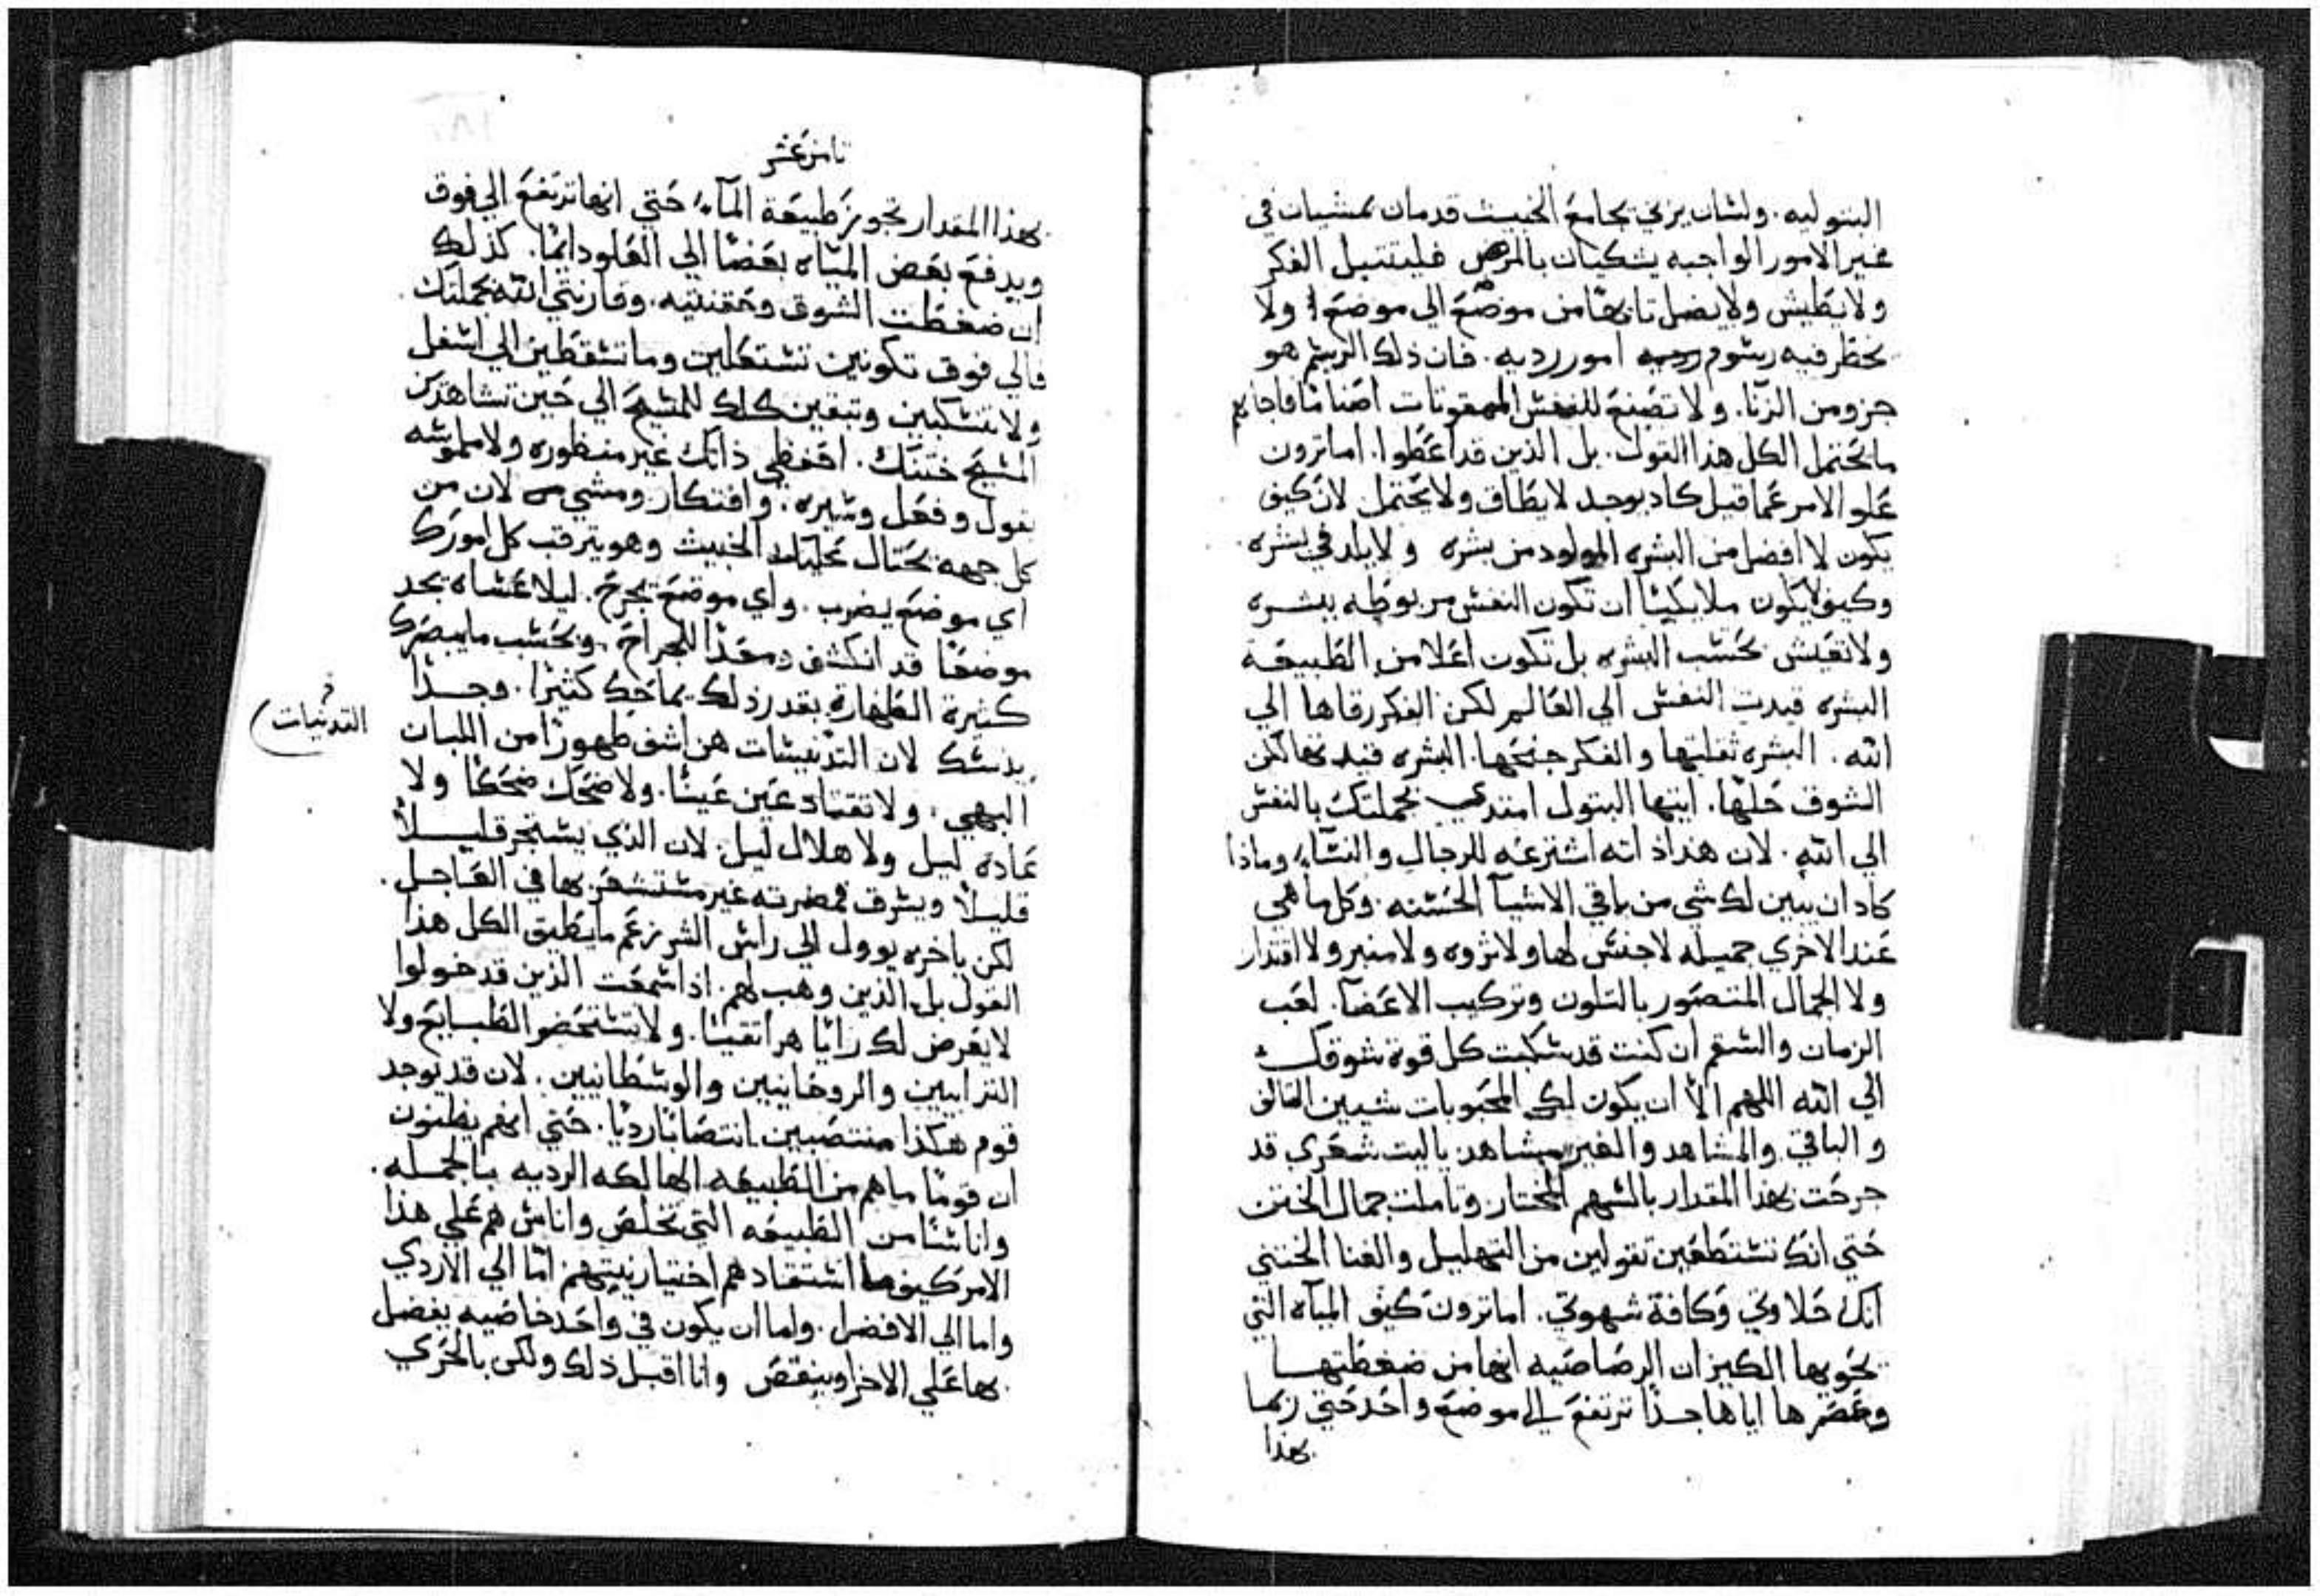 البتوليه. ولسان يزني يجامع الخبيث قدمان تمشيان في
غير الامور الواجبه يشكيان بالمرض فليتبتل الفكر
ولا يطيش ولا يضل تايهًا من موضع الي موضع ولا
يخطر فيه رسوم امور رديه. فان ذلك الرسم هو
جزو من الزنا. ولا تصنع للنفس الممقوتات اصنامًا فاجابهم
ما يحتمل الكل هذا القول. بل الذين قد اعطوا. اما ترون
علو الامر عما قيل كاد يوجد لا يطاق ولا يحتمل لان كيف
يكون لا افضل من البشره المولود من بشره ولا يلد في بشره
وكيف لا يكون ملايكيًا ان تكون النفس مربوطه ببشره
ولا تعيش بحسب البشره بل تكون اعلا من الطبيعة
البشره قيدت النفس الي العالم لكن الفكر رقاها الي
الله. البشره ثقلتها والفكر جنحها. البشره قيدتها لكن
الشوق حلها. ايتها البتول امتدي بجملتك بالنفس
الي الله. لان هذا ذاته اشترعه للرجال والنساء وماذا
كاد ان يبين لك شي من باقي الاشيآ الحسنه. وكل ما هي
عند الاخري جميله لا جنس لها ولا ثروه ولا منبر ولا اقتدار
ولا الجمال المتصور بالتلون وتركيب الاعضآ. لعب
الزمان والسقم ان كنت قد سكبت كل قوة شوقك
الي الله اللهم الا ان يكون لك المحبوبات شيين الفالق
والباقي والمشاهد والغير مشاهد ياليت شعري قد
جرحت بهذا المقدار بالسهم المختار وتاملت جمال الختن
حتي انك تستطيعين تقولين من التهليل والغنا الختني
انك حلاوتي وكافة شهوتي. اما ترون كيف المياه التي
تحويها الكيزان الرصاصيه انها من ضغطتها
وعصرها اياها جدًا ترتفع الي موضع واحد حتي ربما
بهذا
ثامن عشر
بهذا المقدار تجوز طبيعة المآء حتي انها ترتفع الي فوق
ويدفع بعض المياه بعضًا الي العلو دايمًا. كذلك
ان ضغطت الشوق وحقنتيه. وقارنتي الله بجملتك
فالي فوق تكونين تستعلين وما تسقطين الي اسفل
ولا تنسكبين وتبقين كلك للمسيح الي حين تشاهدين
المسيح ختنك. احفظي ذاتك غير منظوره ولا ملموسه
بقول وفعل وسيره. وافتكار ومشي لان من
كل جهه يحتال عليك الخبيث وهو يترقب كل امورك
اي موضع يضرب. واي موضع يجرح. ليلا عساه يجد
موضعًا قد انكشف ومعدًا للجراح. وبحسب ما يبصرك
كثيرة الطهارة بقدر ذلك يماحك كثيرًا. وجدًا
يدنسك لان التدنيسات هن اشف ظهورًا من اللباس
البهي. ولا تقتاد عين عينًا. ولا ضحك ضحكًا ولا
عاده ليل ولا هلال ليل. لان الذي يستجر قليلاً
قليلاً ويسرق فمضرته غير مستشعر بها في العاجل.
لكن باخره يوول الي راس الشر زعم ما يطيق الكل هذا
القول بل الذين وهب لهم. اذا سمعت الذين قد خولوا
لا يعرض لك رايًا هراتقيًا. ولا تستحضر الطبايع ولا
الترابيين والروحانيين والوسطانيين. لان قد يوجد
قوم هكذا منتصبين انتصابًا رديًا. حتي انهم يظنون
ان قومًا ما هم من الطبيعه الهالكه الرديه بالجمله.
واناسًا من الطبيعه التي تخلص واناس هم علي هذا
الامر كيف ما استقادهم اختيار نيتهم اما الي الاردي
واما الي الافضل. واما ان يكون في واحد خاصيه يفضل
بها علي الاخر او ينقص وانا اقبل ذلك ولكن بالحري
التدنيات